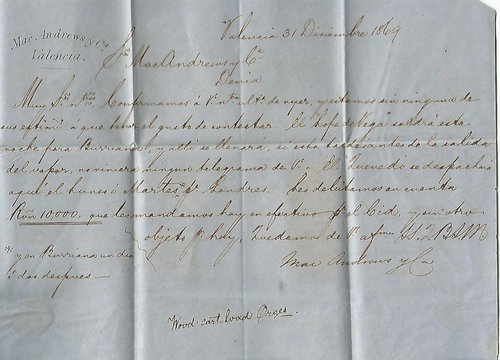 Mac Andrews y Ca.
Valencia.
Valencia 31 Diciembre 1869
Sres Mac Andrews y Ca
Denia
Muy Srs ntros Confirmamos á V. ntra ulta de ayer, y estamos sin ninguna de
sus estim á que tener el gusto de contestar. El Lope de Vega saldrá esta
noche para Burriana, y allí se llenará, si esta tarde antes de la salida
del vapor, no viniera ningun telegrama de V. El Quevedo se despachará
aquí el Lunes ó Martes pa Londres. Les debitamos en cuenta
Rvn 10,000, que les mandamos hoy en efectivo pr el Cid, y sin otro
objeto pr hoy, Quedamos de V afmos
Mac Andrews y Ca
y en Burriana un dia
ó dos despues —
Wood cart load Orges.